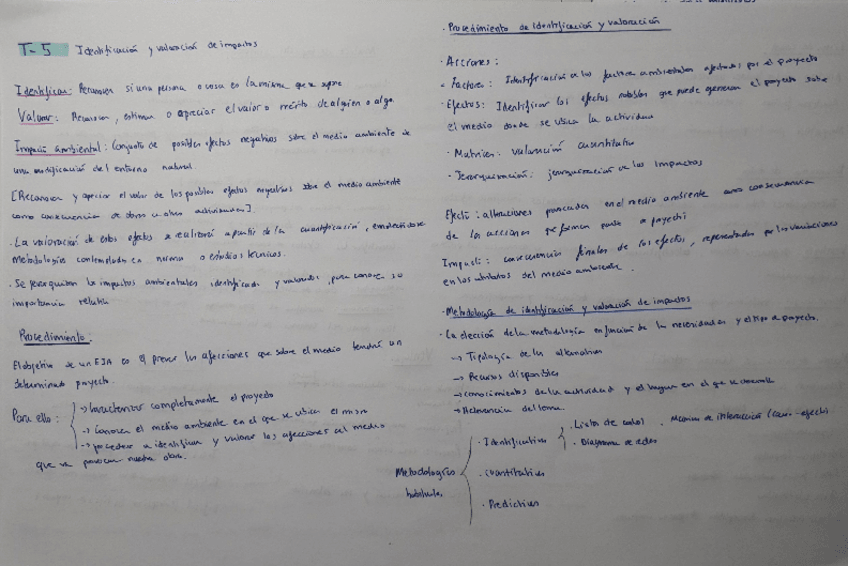 T-5 Identificación y valoración de impactos
Identificar: Reconocer si una persona o cosa es la misma que se supone
Valorar: Reconocer, estimar o apreciar el valor o mérito de alguien o algo.
Impacto ambiental: Conjunto de posibles efectos negativos sobre el medio ambiente de
una modificación del entorno natural
[Reconocer y apreciar el valor de los posibles efectos negativos sobre el medio ambiente
como consecuencia de obras u otras actividades].
· La valoración de estos efectos se realizará a partir de la cuantificación, empleándose
metodologías contempladas en normas o estudios técnicos.
· Se jerarquizan los impactos ambientales identificados y valorados, para conocer su
importancia relativa
Procedimiento:
El objetivo de un EIA es prever las afecciones que sobre el medio tendrá un
determinado proyecto.
Para ello: → Caracterizar completamente el proyecto
→ Conocer el medio ambiente en el que se ubica el mismo
→ proceder a identificar y valorar las afecciones al medio
que va provocar nuestra obra.
· Procedimiento de identificación y valoración
· Acciones:
· Factores: Identificación de los factores ambientales afectados por el proyecto
· Efectos: Identificar los efectos notables que puede generar el proyecto sobre
el medio donde se ubica la actividad
· Matrices: valoración cuantitativa
· Jerarquización: jerarquización de los impactos
Efecto: alteraciones provocadas en el medio ambiente como consecuencia
de las acciones que forman parte proyecto
Impacto: consecuencias finales de los efectos, representados por las variaciones
en los atributos del medio ambiente.
· Metodología de identificación y valoración de impactos
· La elección de la metodología en función de las necesidades y el tipo de proyecto.
→ Tipología de las alternativas
→ Recursos disponibles
→ conocimientos de la actividad y el lugar en el que se desarrolla
→ Referencias del tema
Metodologías habituales
· Identificativas · Listas de control · Matrices de interacción (causa-efecto)
· Diagramas de redes
· Cuantitativas
· Predictivas